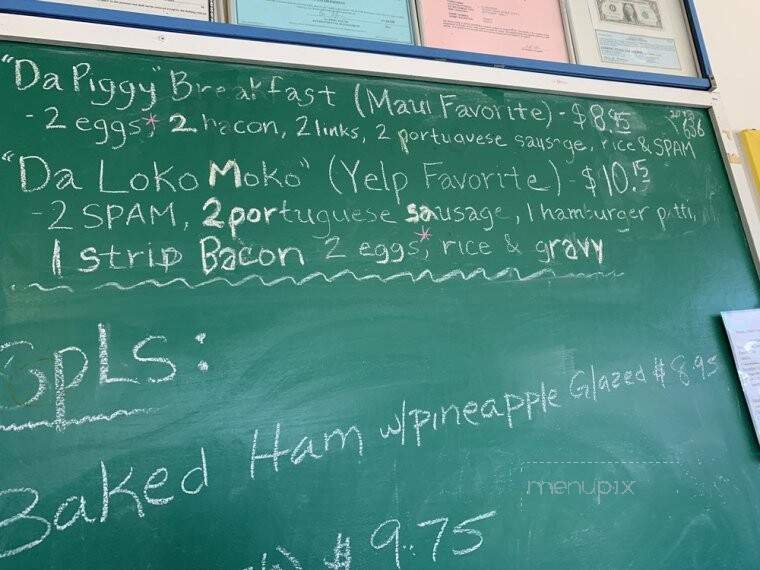 "Da Piggy" Breakfast (Maui Favorite) - $8.95
- 2 eggs* 2 bacon, 2 links, 2 portuguese sausage, rice & SPAM
"Da Loko Moko" (Yelp Favorite) - $10.15
- 2 SPAM, 2 portuguese sausage, 1 hamburger patti,
1 strip Bacon 2 eggs*, rice & gravy
SpLS:
Baked Ham w/pineapple Glazed $8.95
$9.75
menupix